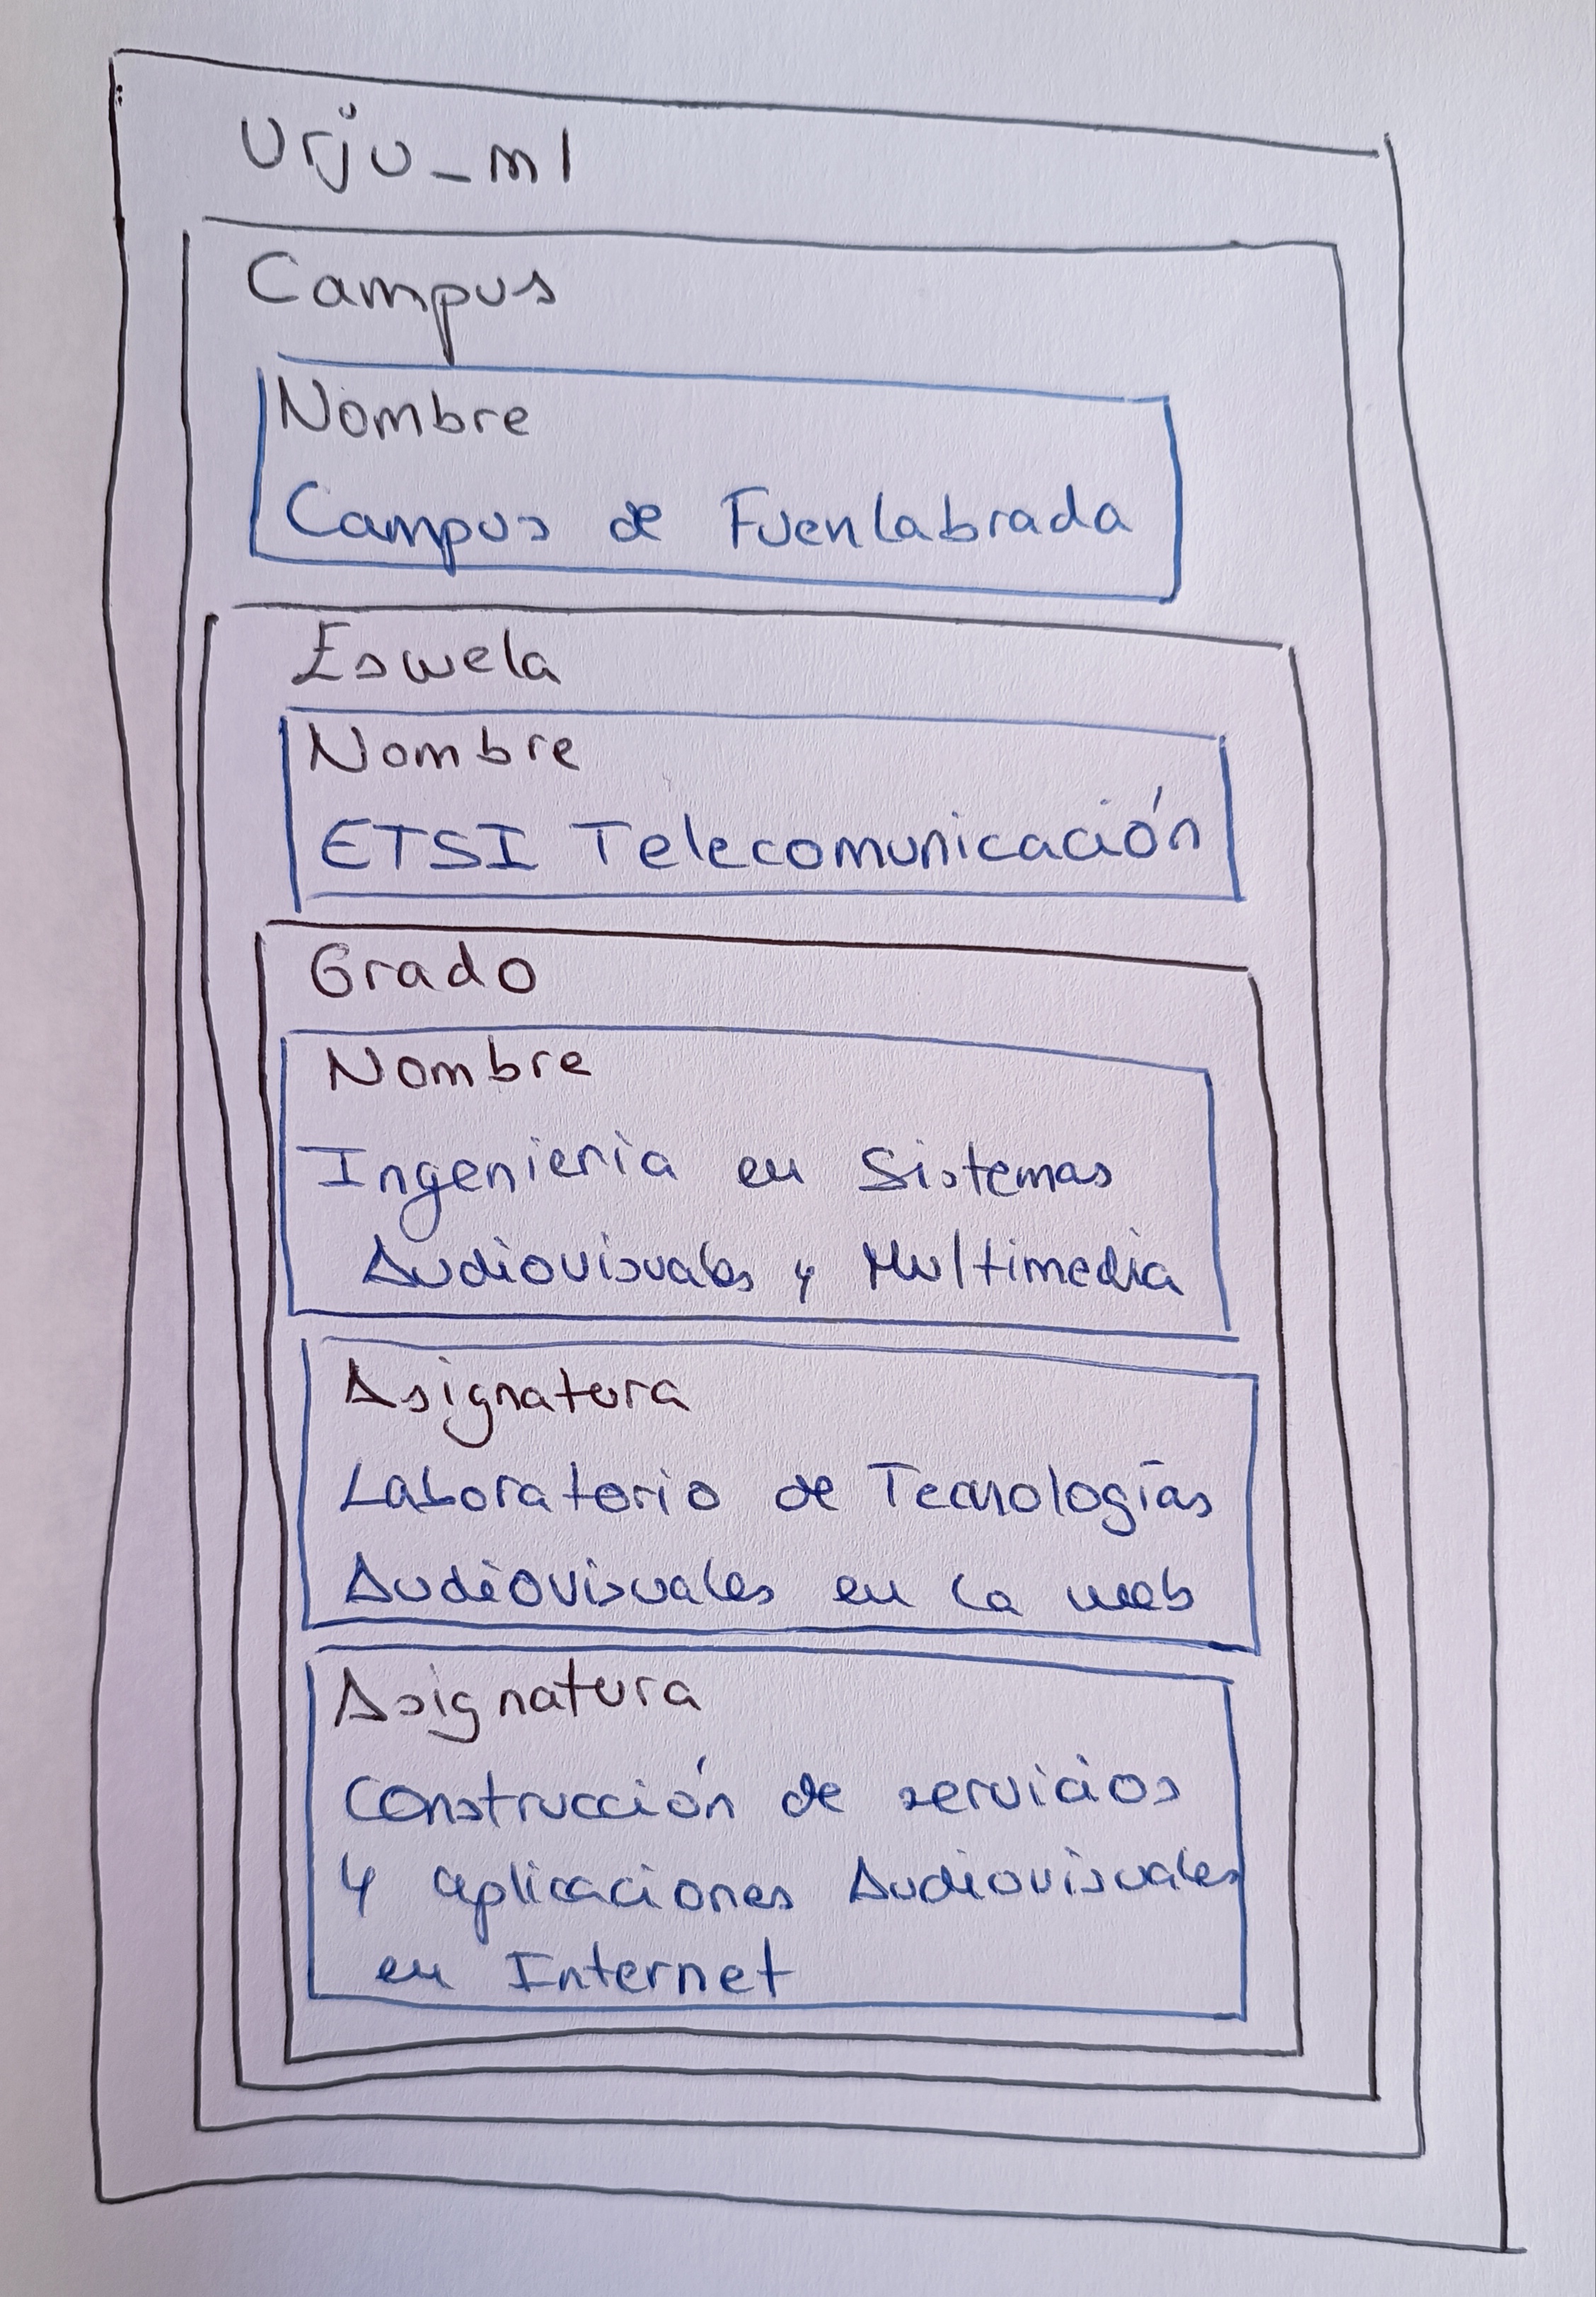 Urju_ml
Campus
Nombre
Campus de Fuenlabrada
Escuela
Nombre
ETSI Telecomunicación
Grado
Nombre
Ingenieria en Sistemas
Audiovisuales y Multimedia
Asignatura
Laboratorio de Tecnologías
Audiovisuales en la web
Asignatura
Construcción de servicios
y aplicaciones Audiovisuales
en Internet